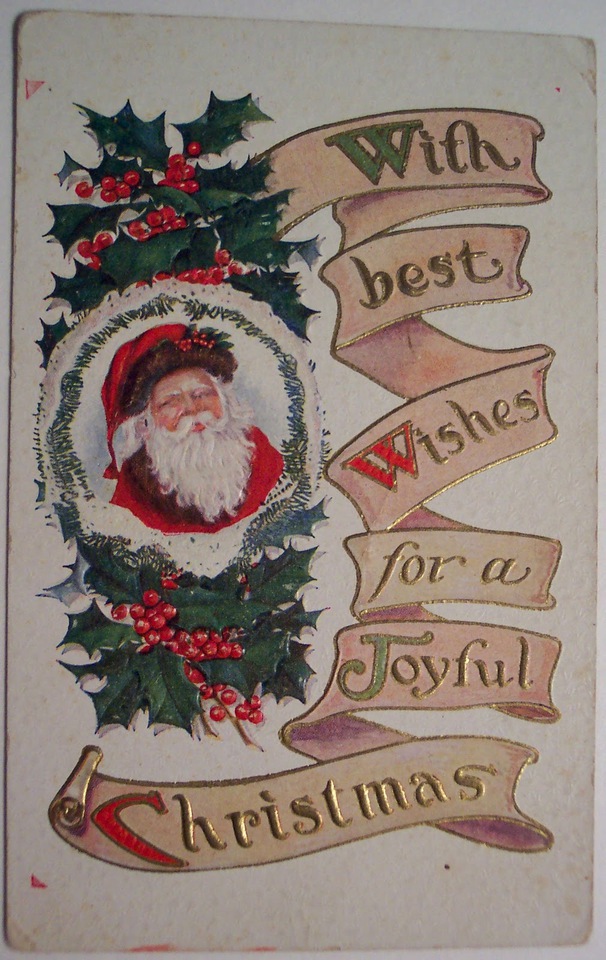 With
best
Wishes
for a
Joyful
Christmas